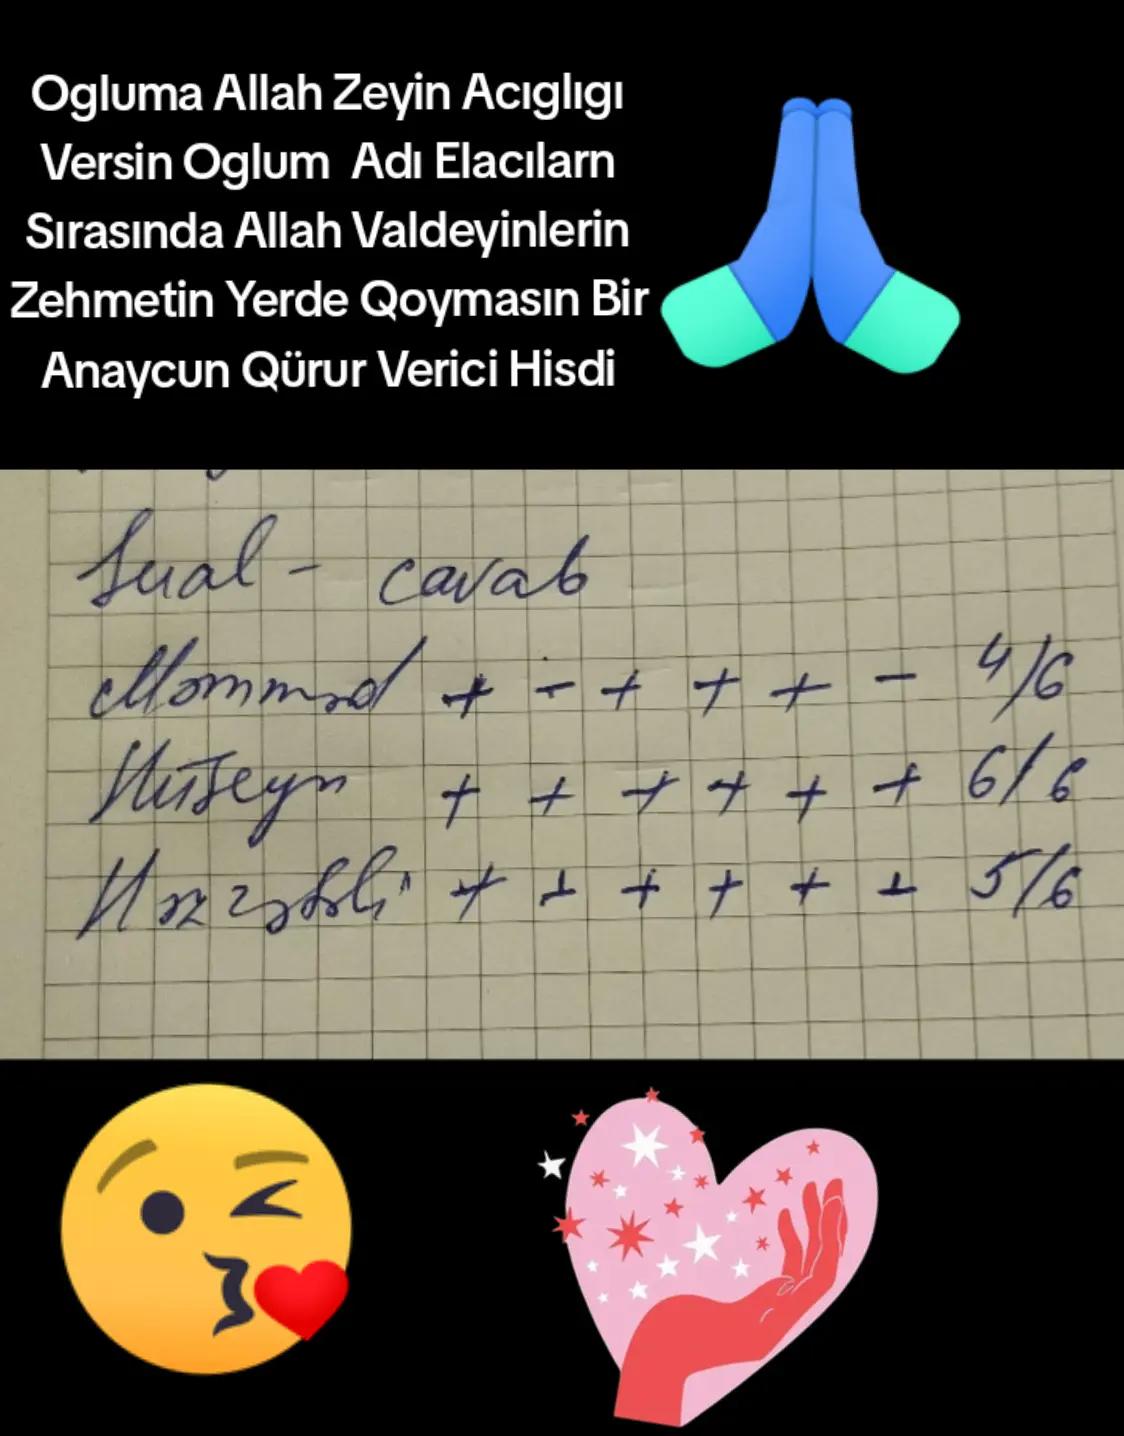 Ogluma Allah Zeyin Acıglıgı
Versin Oglum Adı Elacılarn
Sırasında Allah Valdeyinlerin
Zehmetin Yerde Qoymasın Bir
Anaycun Qürur Verici Hisdi
Sual - cavab
Məmməd + - + + + - 4/6
Hüseyn + + + + + + 6/6
+ + + + + 5/6